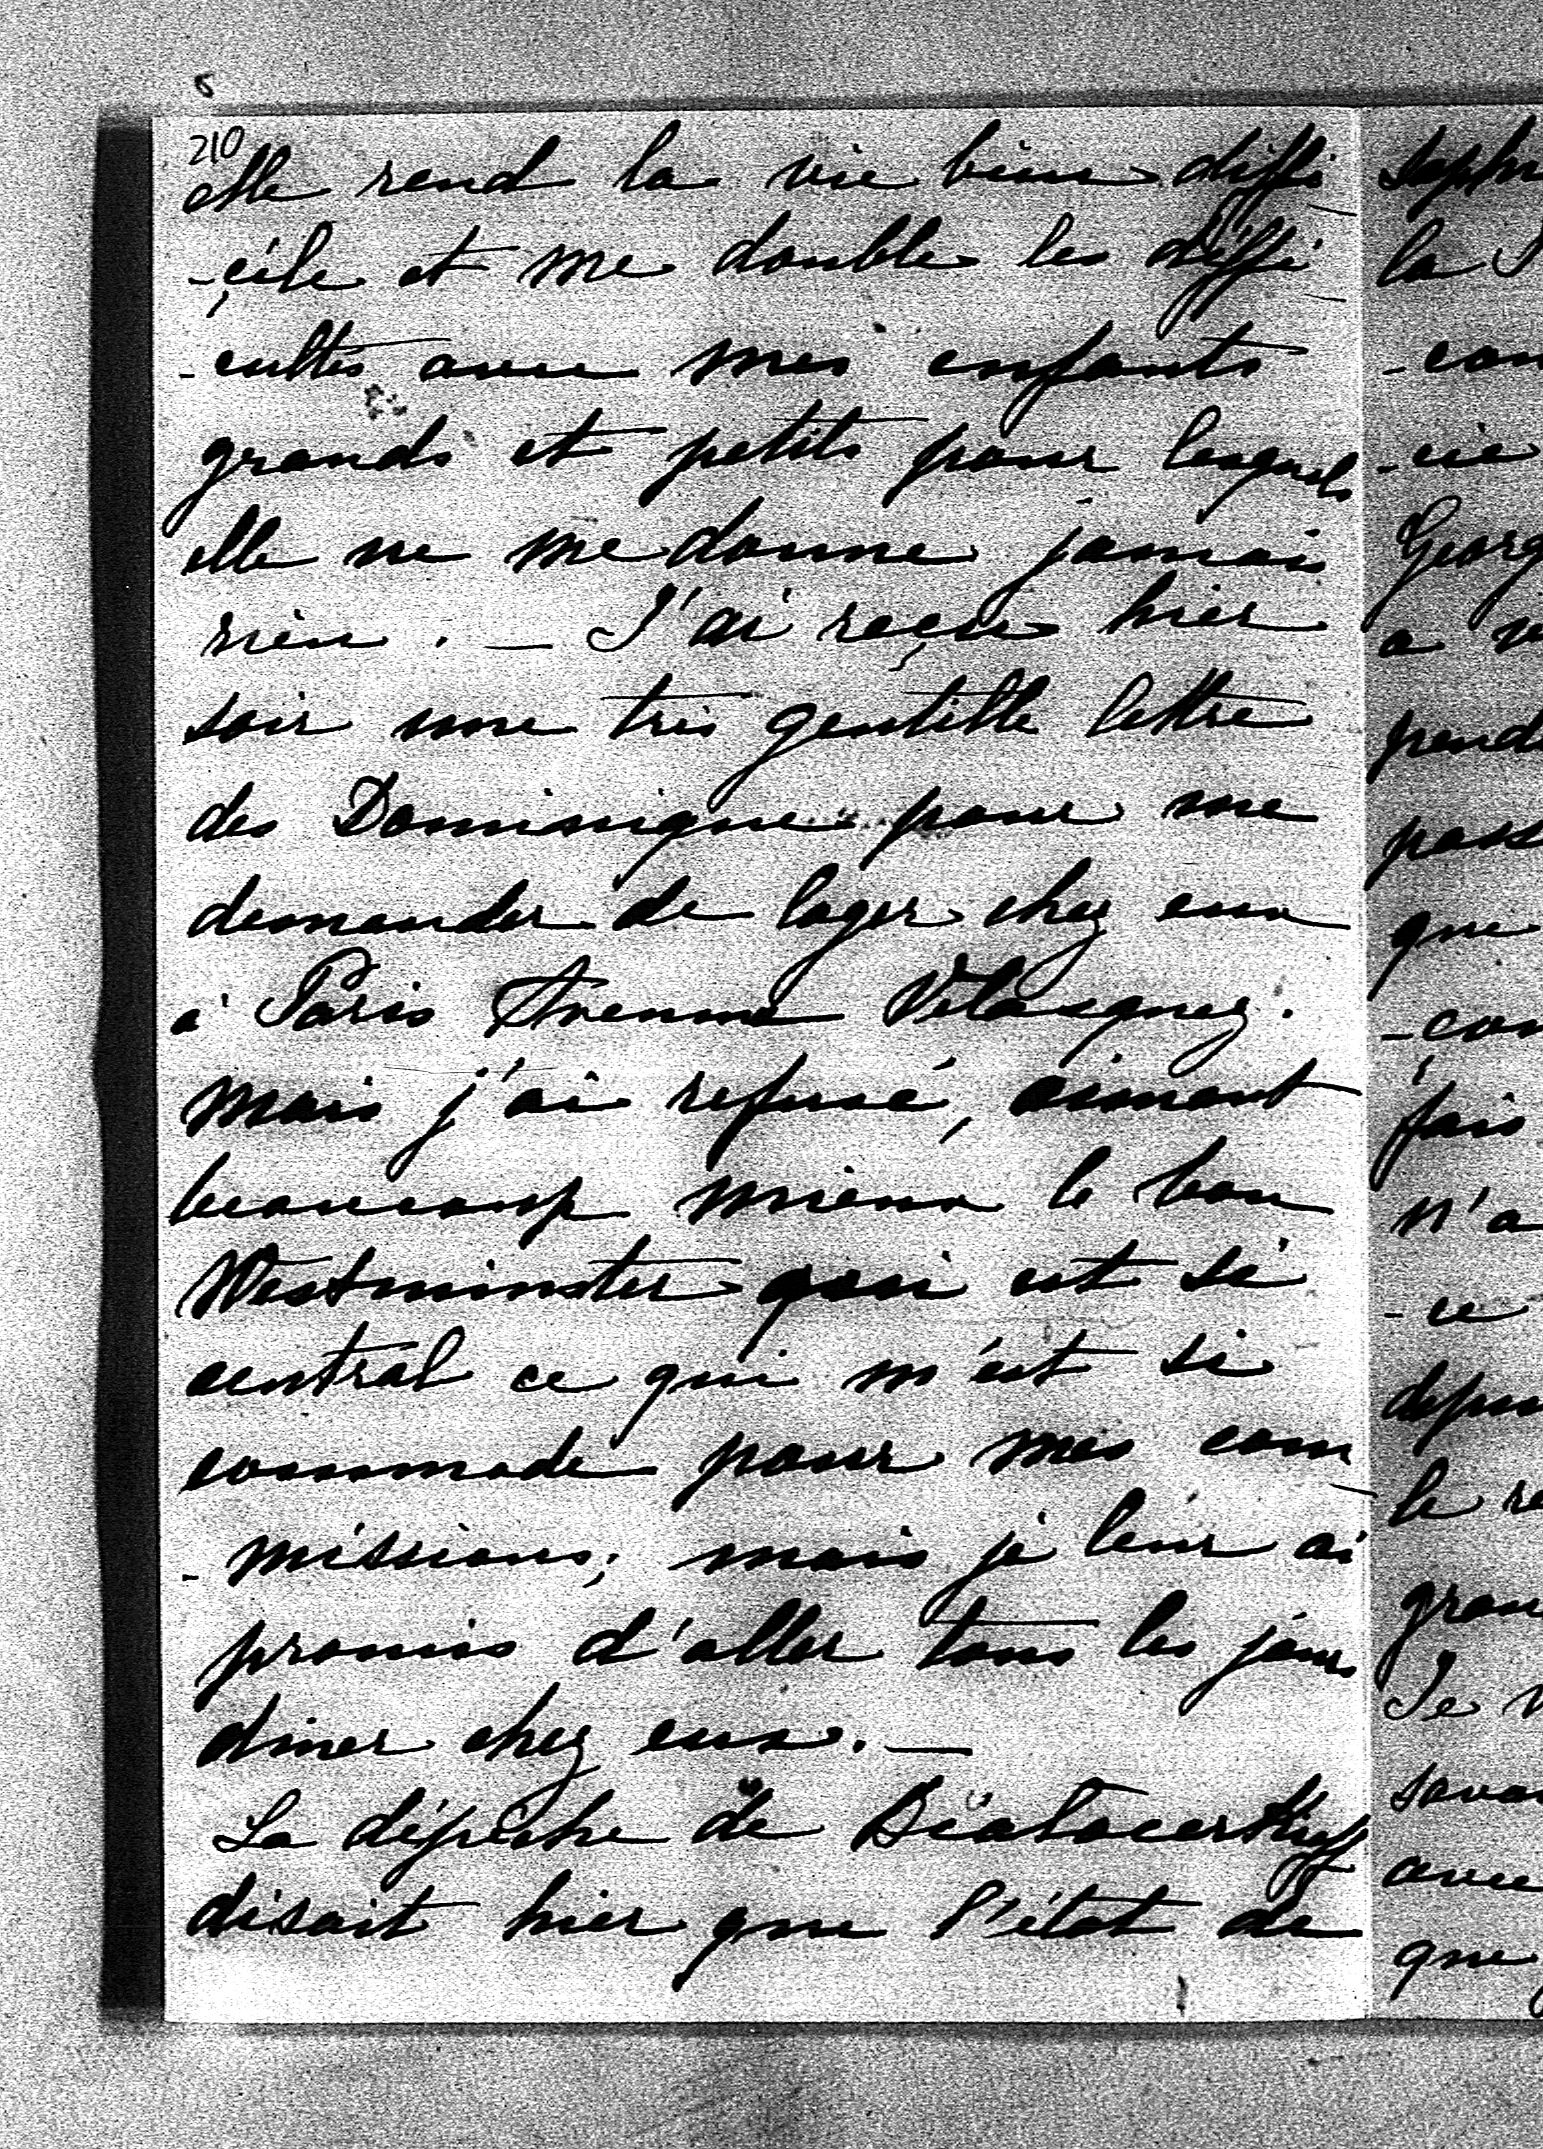 210
elle rend la vie bien diffi
-çile et me double les diffi
-cultés avec mes enfants
grands et petits pour lesquels
elle ne me donne jamais
rien. — J'ai reçu hier
soir une très gentille lettre
des Dominique pour me
demander de loger chez eux
à Paris Avenue Velasquez.
mais j'ai refusé, aimant
beaucoup mieux le bon
Westminster qui est si
central ce qui m'est si
commode pour mes com
-missions; mais je leur ai
promis d'aller tous les jours
diner chez eux. —
La dépêche de
disait hier que l'état de